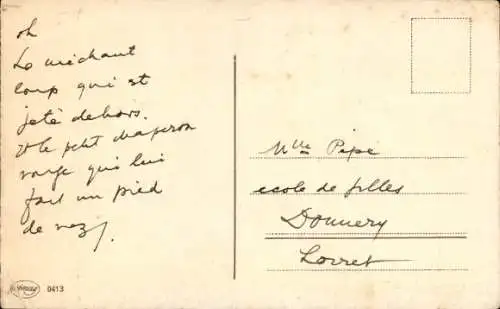 oh
Le méchant
loup qui est
jeté dehors.
et le petit chaperon
rouge qui lui
fait un pied
de nez,
Mlle Pipe
école de filles
Donnery
Loiret
0413